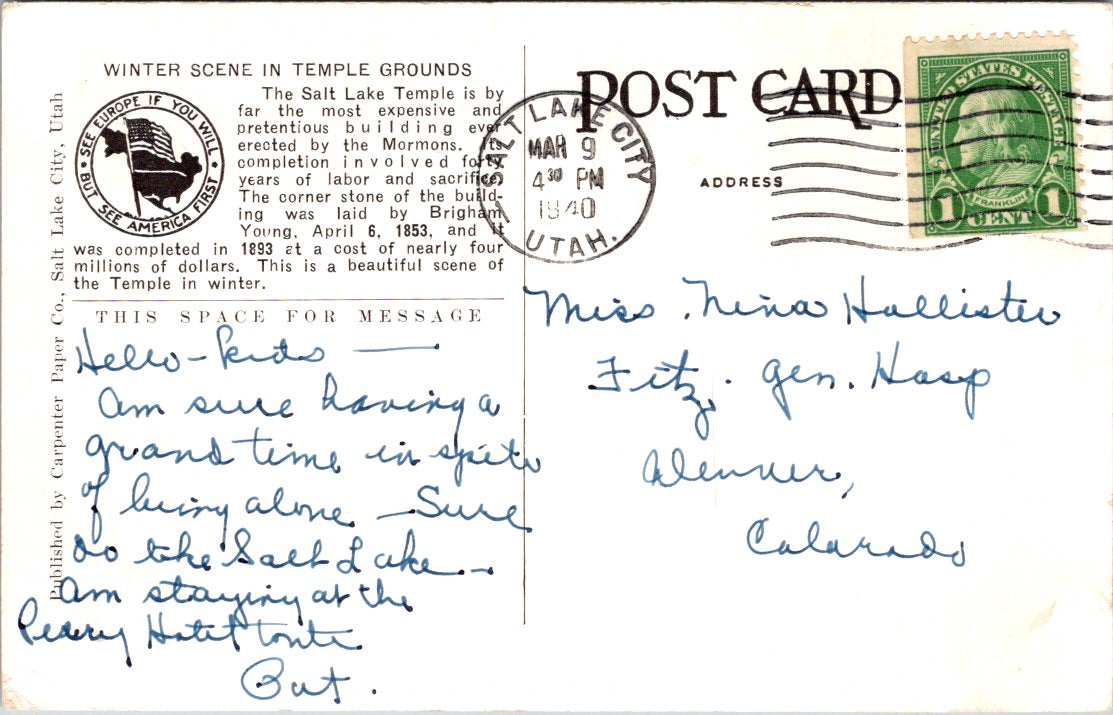 WINTER SCENE IN TEMPLE GROUNDS
SEE EUROPE IF YOU WILL
BUT SEE AMERICA FIRST
The Salt Lake Temple is by
far the most expensive and
pretentious building ever
erected by the Mormons. Its
completion involved forty
years of labor and sacrifice.
The corner stone of the build-
ing was laid by Brigham
Young, April 6, 1853, and it
was completed in 1893 at a cost of nearly four
millions of dollars. This is a beautiful scene of
the Temple in winter.
THIS SPACE FOR MESSAGE
Published by Carpenter Paper Co., Salt Lake City, Utah
Hello - kids —
Am sure having a
grand time in spite
of being alone — Sure
do like Salt Lake. -
Am staying at the
Peery Hotel tonite.
POST CARD
ADDRESS
SALT LAKE CITY
MAR 9
4 30 PM
1940
UTAH.
UNITED STATES POSTAGE
FRANKLIN
1 CENT 1
Miss Nina Hollister
Fitz. Gen. Hosp
Denver,
Colorado